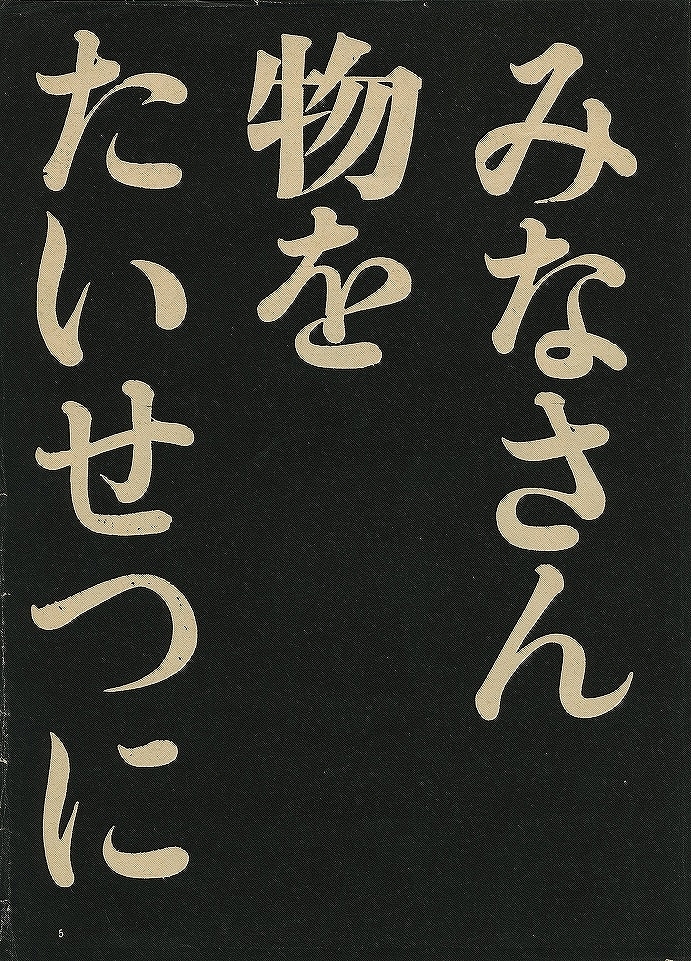 みなさん
物を
たいせつに
5